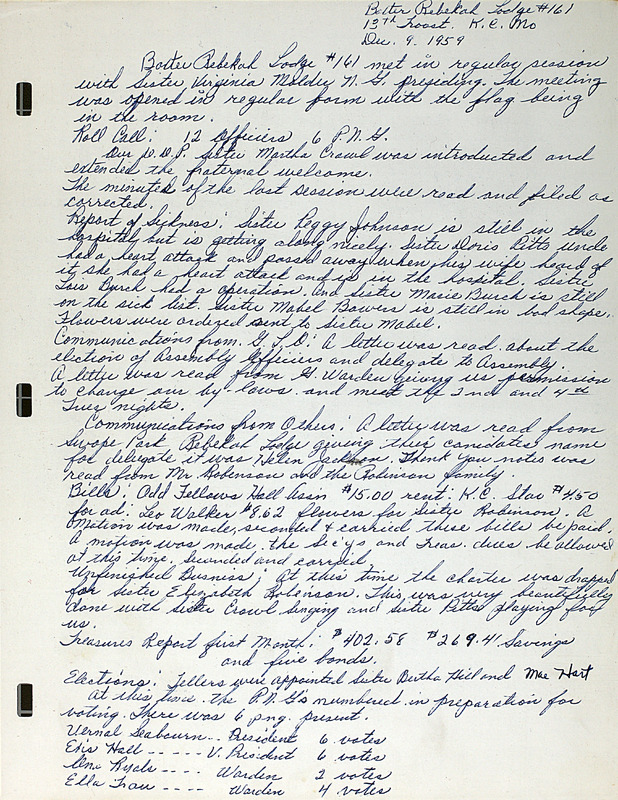 Baxter Rebekah Lodge #161
13th Troost. K.C. Mo
Dec. 9. 1959
Baxter Rebekah Lodge #161 met in regular session
with Sister Virginia Molder N.G. presiding. The meeting
was opened in regular form with the flag being
in the room.
Roll Call: 12 Officers 6 P.N.G.
Our D.D.P. Sister Martha Crowl was introduced and
extended the fraternal welcome.
The minutes of the last session were read and filed as
corrected.
Report of Sickness: Sister Peggy Johnson is still in the
hospital but is getting along nicely. Sister Doris Pitts uncle
had a heart attack and passed away when his wife heard of
it she had a heart attack and is in the hospital. Sister
Lois Burch had a operation. And Sister Marie Burch is still
on the sick list. Sister Mabel Bowers is still in bad shape.
Flowers were ordered sent to Sister Mabel.
Communications from G.L.O: A letter was read about the
election of Assembly Officers and delegate to Assembly.
A letter was read from G. Warden giving us permission
to change our by-laws and meet the 2nd and 4th
Tues nights.
Communications from Others: A letter was read from
Swope Park Rebekah Lodge giving their candidates name
for delegate it was Helen Jackson. Thank you notes was
read from Mr. Robinson and the Robinson family.
Bills: Odd Fellows Hall Assn $15.00 rent: K.C. Star $4.50
for ad: Leo Walker $8.62 flowers for Sister Robinson. A
motion was made, seconded & carried these bills be paid.
A motion was made the Sec'ys and Treas. dues be allowed
at this time. Seconded and carried
Unfinished Busness: At this time the charter was drapped
for Sister Elizabeth Robinson. This was very beautifully
done with Sister Crowl singing and Sister Pitts playing for
us.
Treasures Report first Month: $402.58 $269.41 Savings
and five bonds.
Elections: Tellers were appointed Sister Bertha Hill and Mae Hart
At this time the P.N.G's numbered in preparation for
voting. There was 6 png. present.
Vernal Seabourn.. President 6 votes
Eris Hall ----- V. President 6 votes
Ryals ---- Warden 2 votes
Ella ---- Warden 4 votes